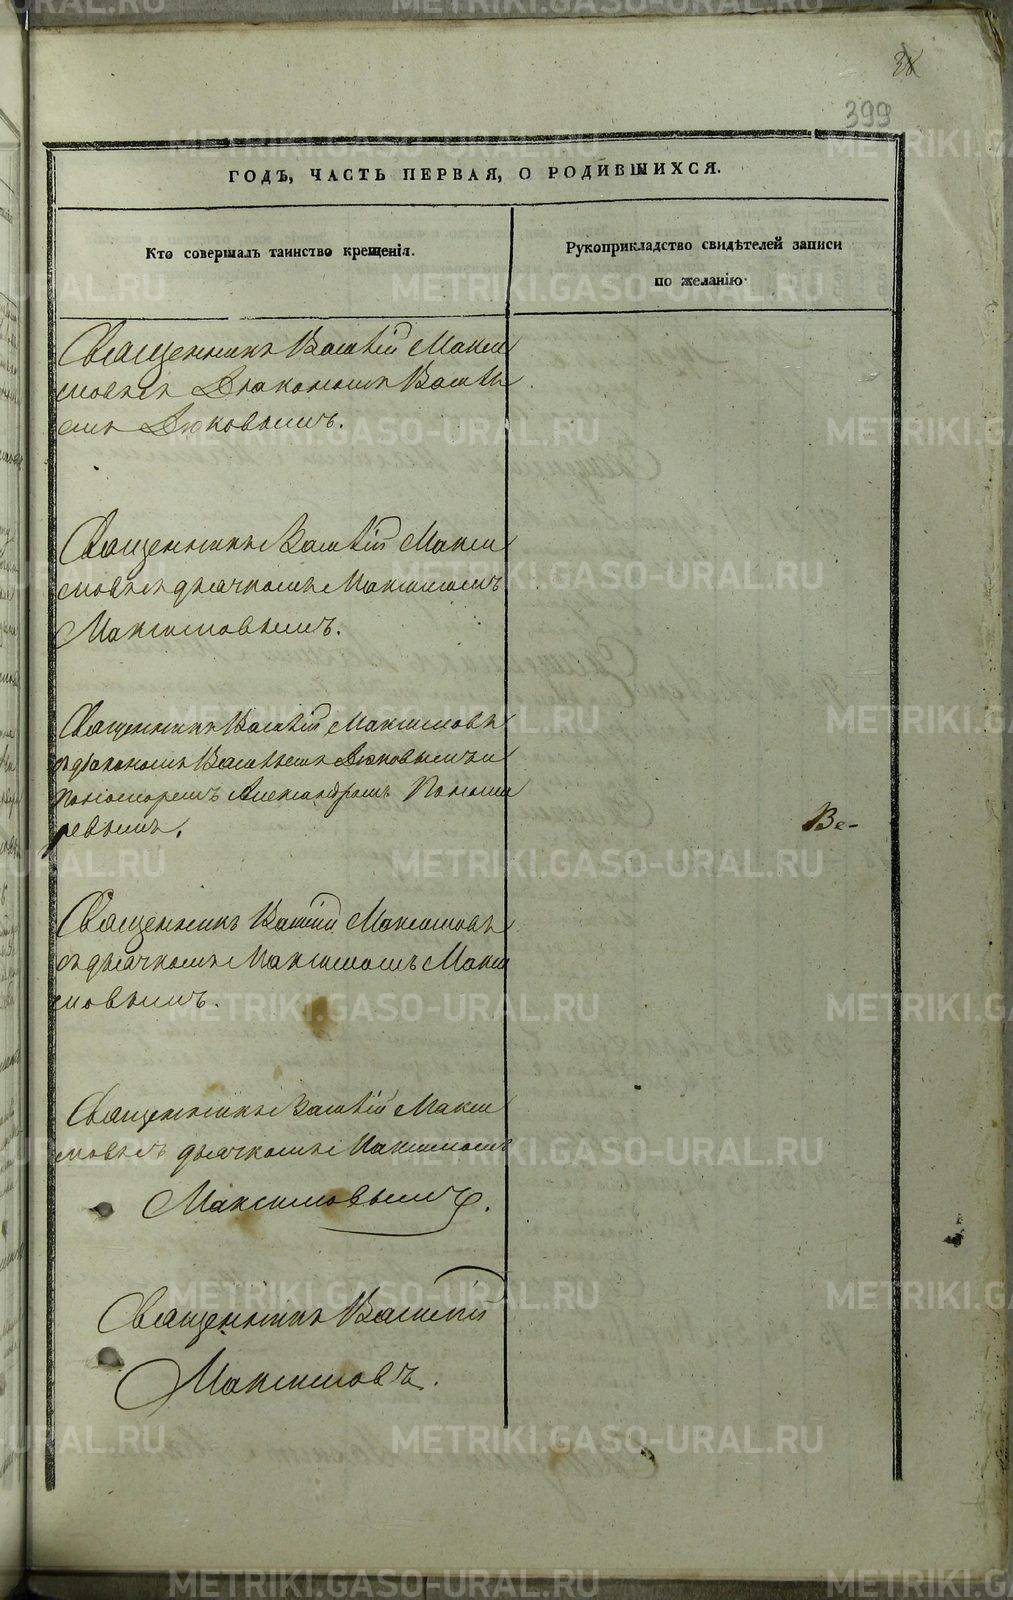 38
399
ГОДЪ, ЧАСТЬ ПЕРВАЯ, О РОДИВШИХСЯ.
Кто совершалъ таинство крещенія.
Рукоприкладство свидѣтелей записи
по желанію
Священникъ Василій Макси
мовъ съ Діакономъ Васи
емъ Дюковымъ.
Священникъ Василій Макси
мовъ съ дьячкомъ Максимомъ
Максимовымъ.
Священникъ Василій Максимовъ
съ діакономъ Василіемъ Дюковымъ и
Пономоремъ Александромъ Пономо
ревымъ.
Ве-
Священникъ Василій Максимовъ
съ дьячкомъ Максимомъ Макси
мовымъ.
Священникъ Василій Макси
мовъ съ дьячкомъ Максимомъ
Максимовымъ.
Священникъ Василій
Максимовъ.
METRIKI.GASO-URAL.RU